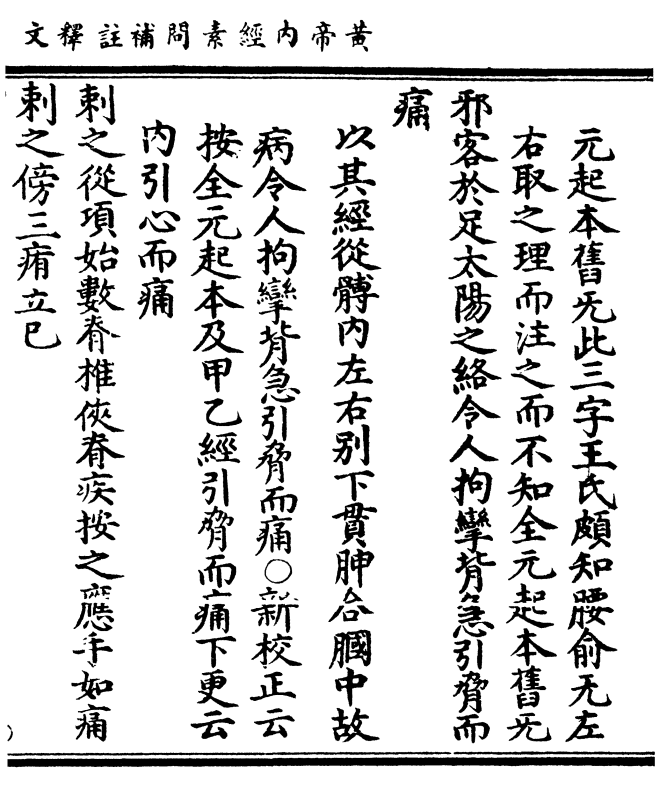 黃帝內經素問補註釋文
元起本舊无此三字王氏頗知腰俞无左
右取之理而注之而不知全元起本舊无
邪客於足太陽之絡令人拘攣背急引脅而
痛
以其經從髆內左右别下貫胂合膕中故
病令人拘攣背急引脅而痛〇新校正云
按全元起本及甲乙經引脅而痛下更云
內引心而痛
刺之從項始數脊椎俠脊疾按之應手如痛
刺之傍三痏立已